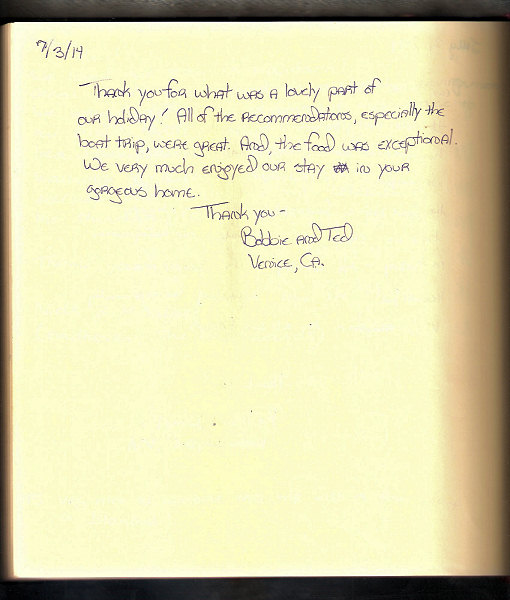 7/3/14
Thank you for what was a lovely part of
our holiday! All of the recommendations, especially the
boat trip, were great. And, the food was exceptional.
We very much enjoyed our stay in your
gorgeous home.
Thank you -
Bobbie and Ted
Venice, CA.